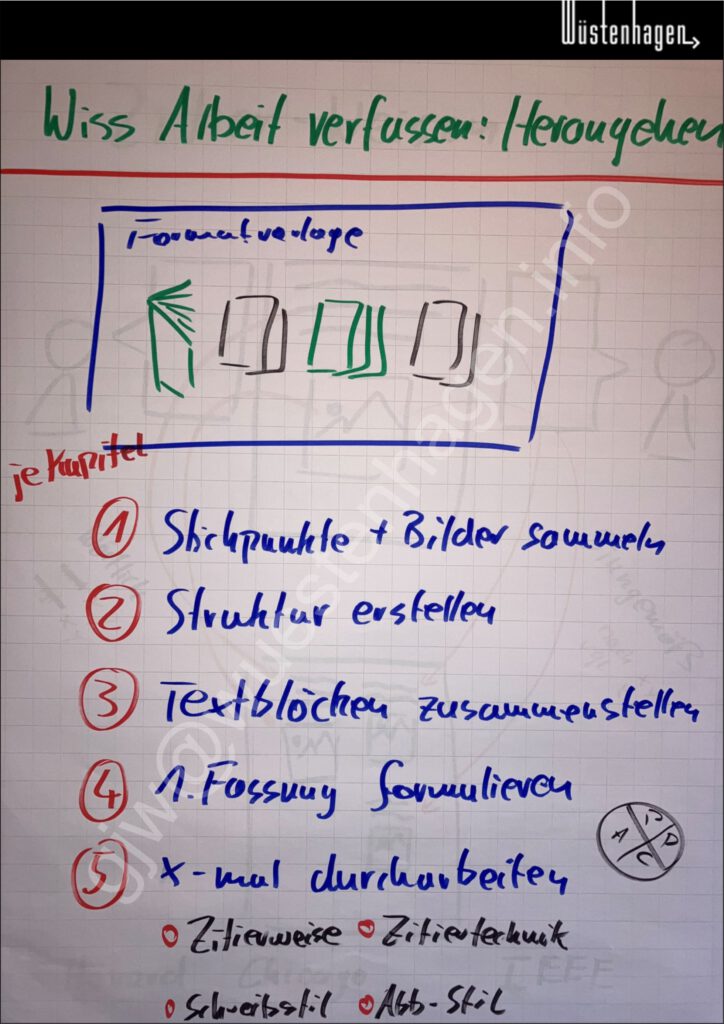 Wüstenhagen
Wiss Arbeit verfassen: Herangehen
Formatvorlage
je Kapitel
1 Stichpunkte + Bilder sammeln
2 Struktur erstellen
3 Textblöcken zusammenstellen
4 1. Fassung formulieren
P D C A
5 x-mal durcharbeiten
Zitierweise Zitiertechnik
Schreibstil Abb-Stil
gjw@wuestenhagen.info
Chicago IEEE